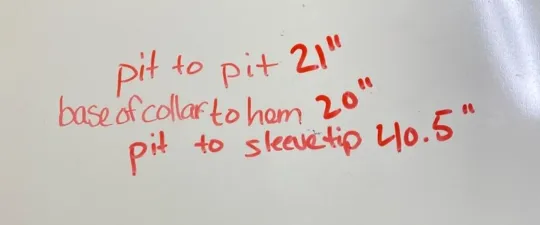 pit to pit 21"
base of collar to hem 20"
pit to sleeve tip 40.5"